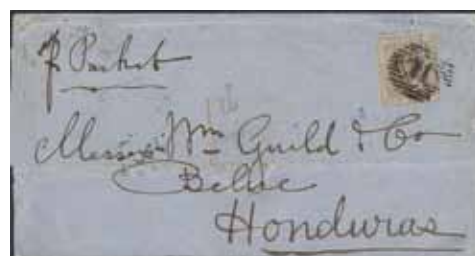 p Packet
Messrs Wm Guild & Co
Belize
Honduras